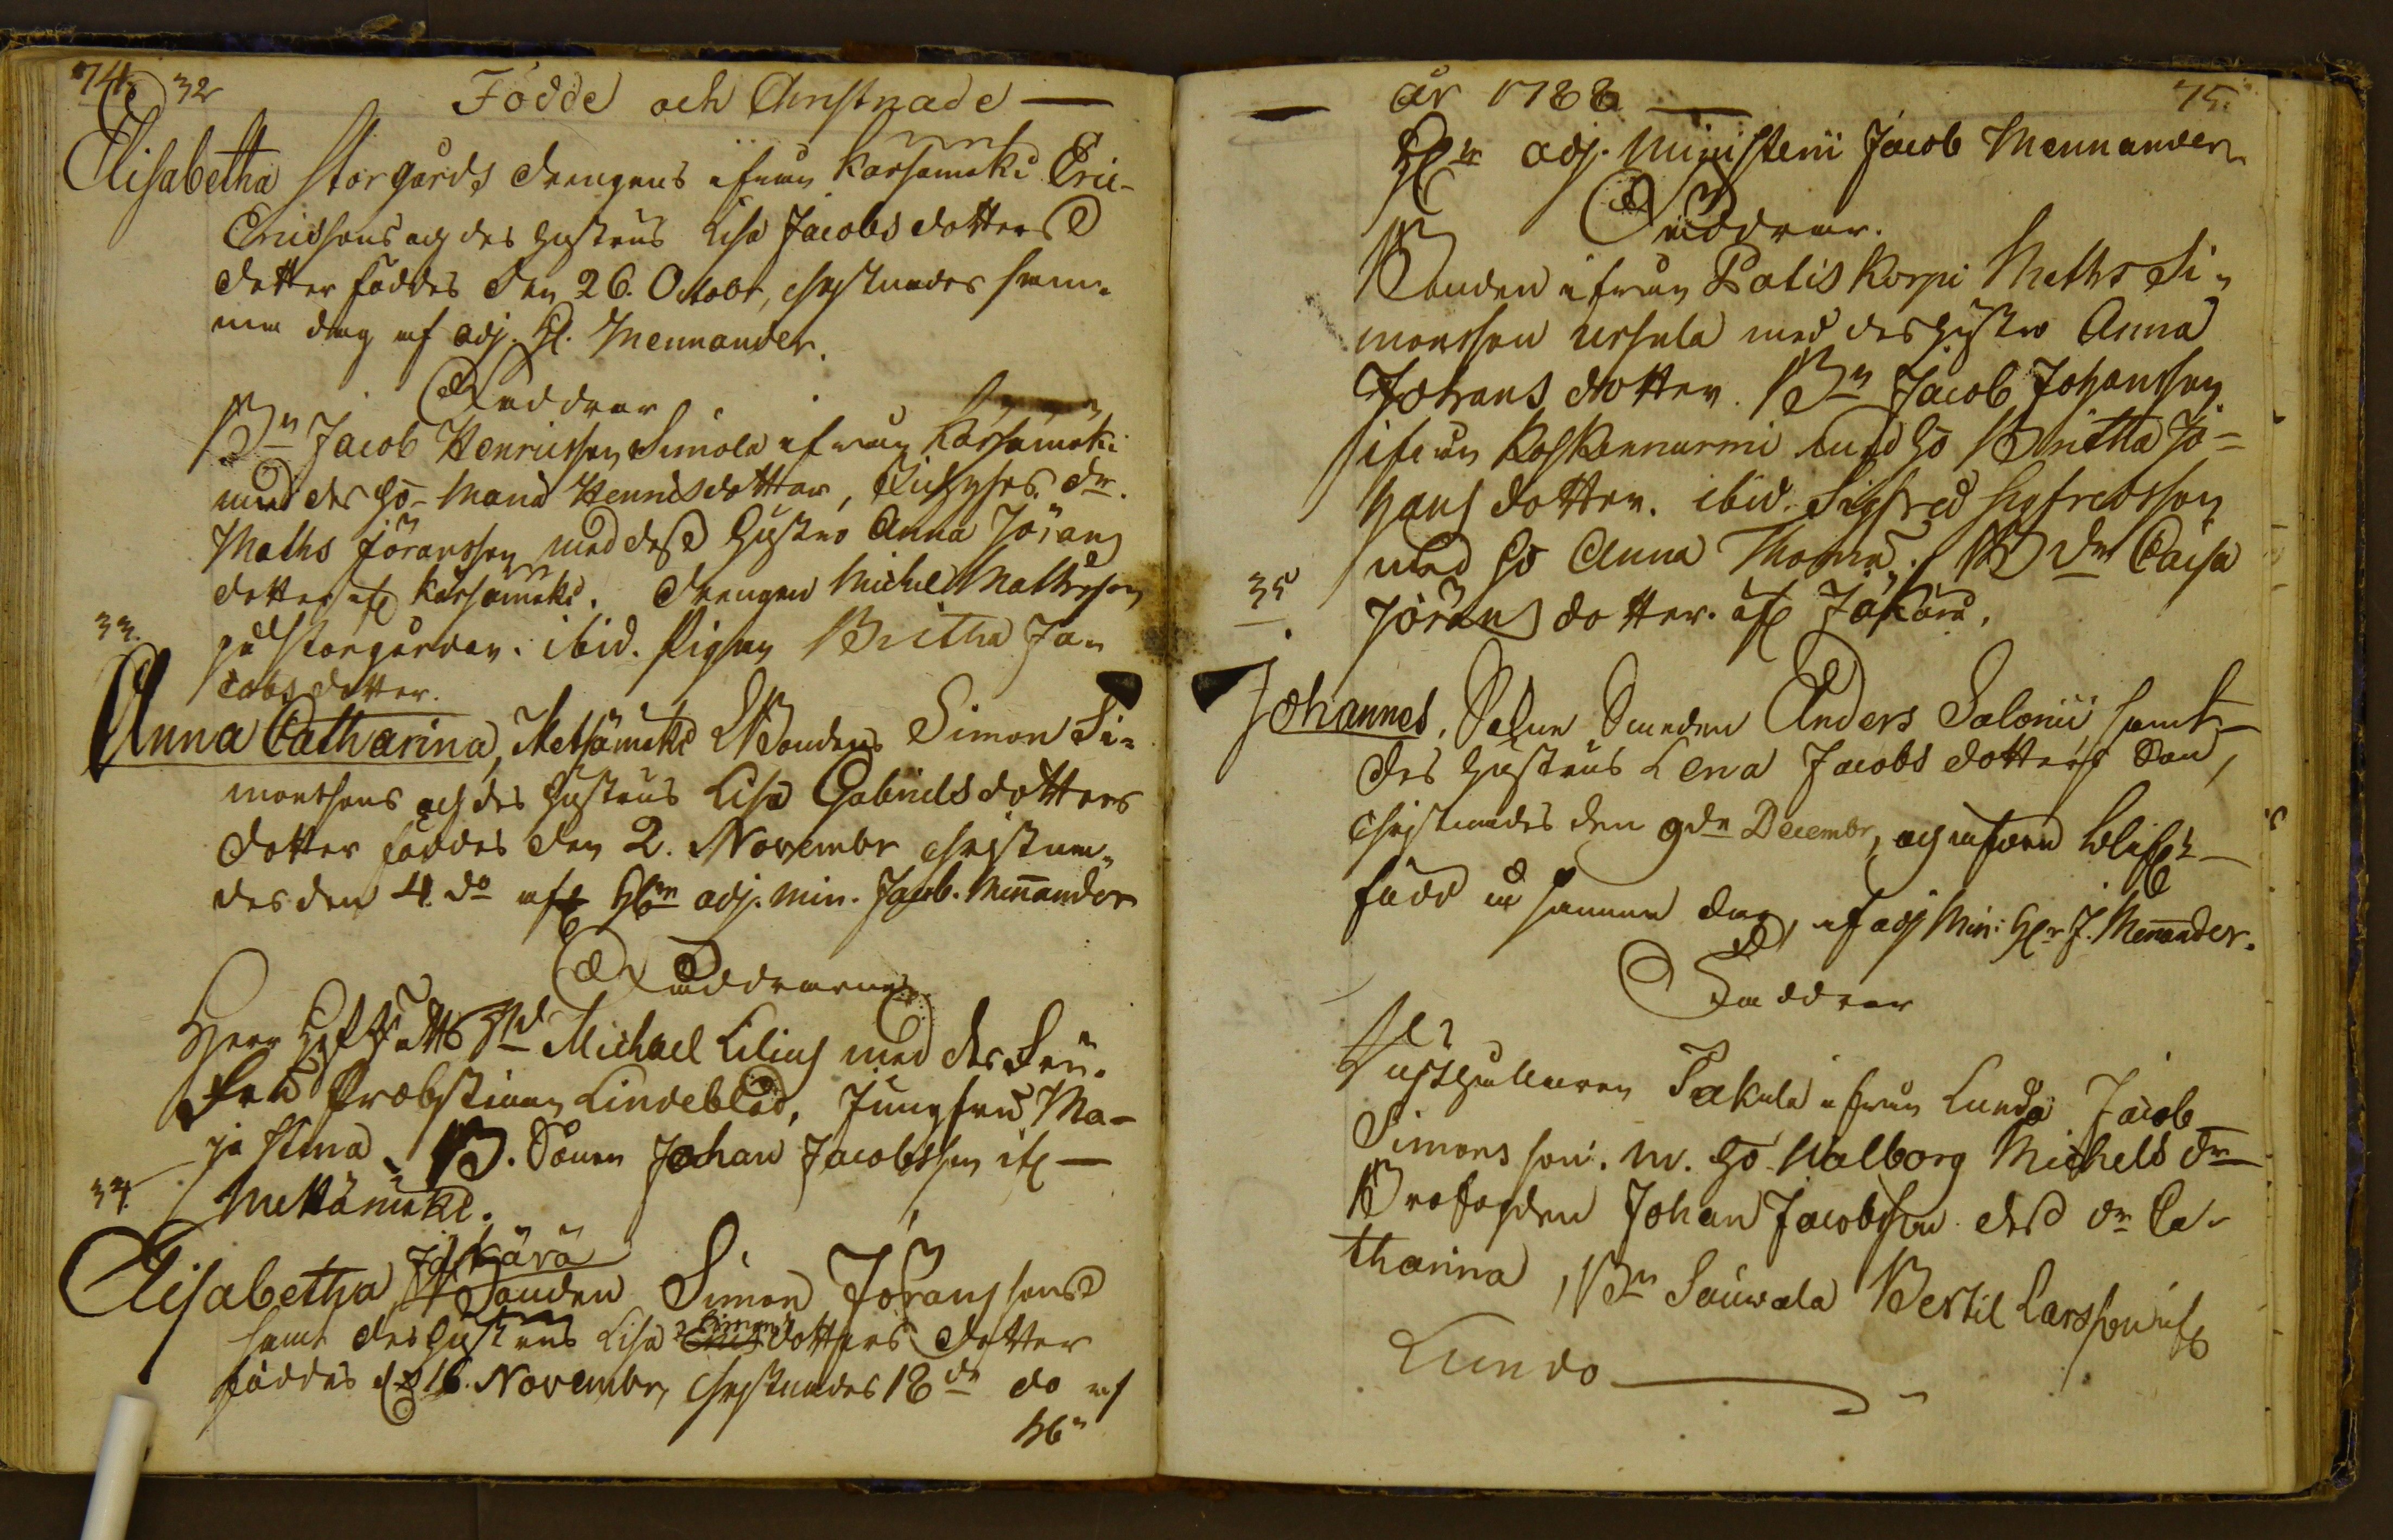 74. 32 Födde och Christnade —
Elisabetha Storgårds drengens ifrån Karsamäki Eric
Ericsons och des hustrus Lisa Jacobs dotters
dotter föddes den 26. Octobr, christnades sam-
ma dag af adj. H. Mennander.
Faddrar
Bn Jacob Henricsson Simola ifrån Karsamäki
med des Ho Maria Henricsdotter,
Maths Jöransson med dess hustru Anna Jörans
dotter if. Karsamäki. drengen Michel Mathsson
på Storgården. ibid. Pigan Britha Ja-
cobsdotter.
33.
Anna Catharina, Metsämäki Bondens Simon Si-
monssons och des hustrus Lisa Gabrielsdotters
dotter föddes den 2. Novembr christna-
des den 4. do af Hrn adj. min. Jacob. Menander
Faddrarne
Herr Michael Lilius med des Fru-
Fru Probstinnan Lindeblad, Jungfru Ma-
ja Stina. B. Sonen Johan Jacobsson if. —
Mettämäki.
34.
Elisabetha, Jäkärä Bonden Simon Jöranssons
samt des hustrus Lisa Simons dotters dotter
föddes d. 16. Novembr, christnades 18de do af
Hr
— år 1788 — 75.
Hr adj. Ministerii Jacob Mennander
Faddrar.
Bonden ifrån Patis Korpi Maths Si-
monsson Ursula med des hustru Anna
Johans dotter. Bn Jacob Johansson
ifrån Koskennurmi med Ho Britha Jo-
hans dotter. ibid. Sigfred Sigfredsson
med Ho Anna Thomæ. B dr Caisa
Jörans dotter. if. Jäkärä.
35.
Johannes, Smeden Anders Salonii samt
des hustrus Lena Jacobs dotters Son,
christnades den 9de Decembr, och
född samma dag, af adj Min: Hr J. Menander.
Faddrar
Takula ifrån Lundo Jacob
Simonsson. m. Ho Walborg Michels dr
Johan Jacobsson dess dr Ca-
tharina, Bn Sauwala Bertil Larsson if.
Lundo —